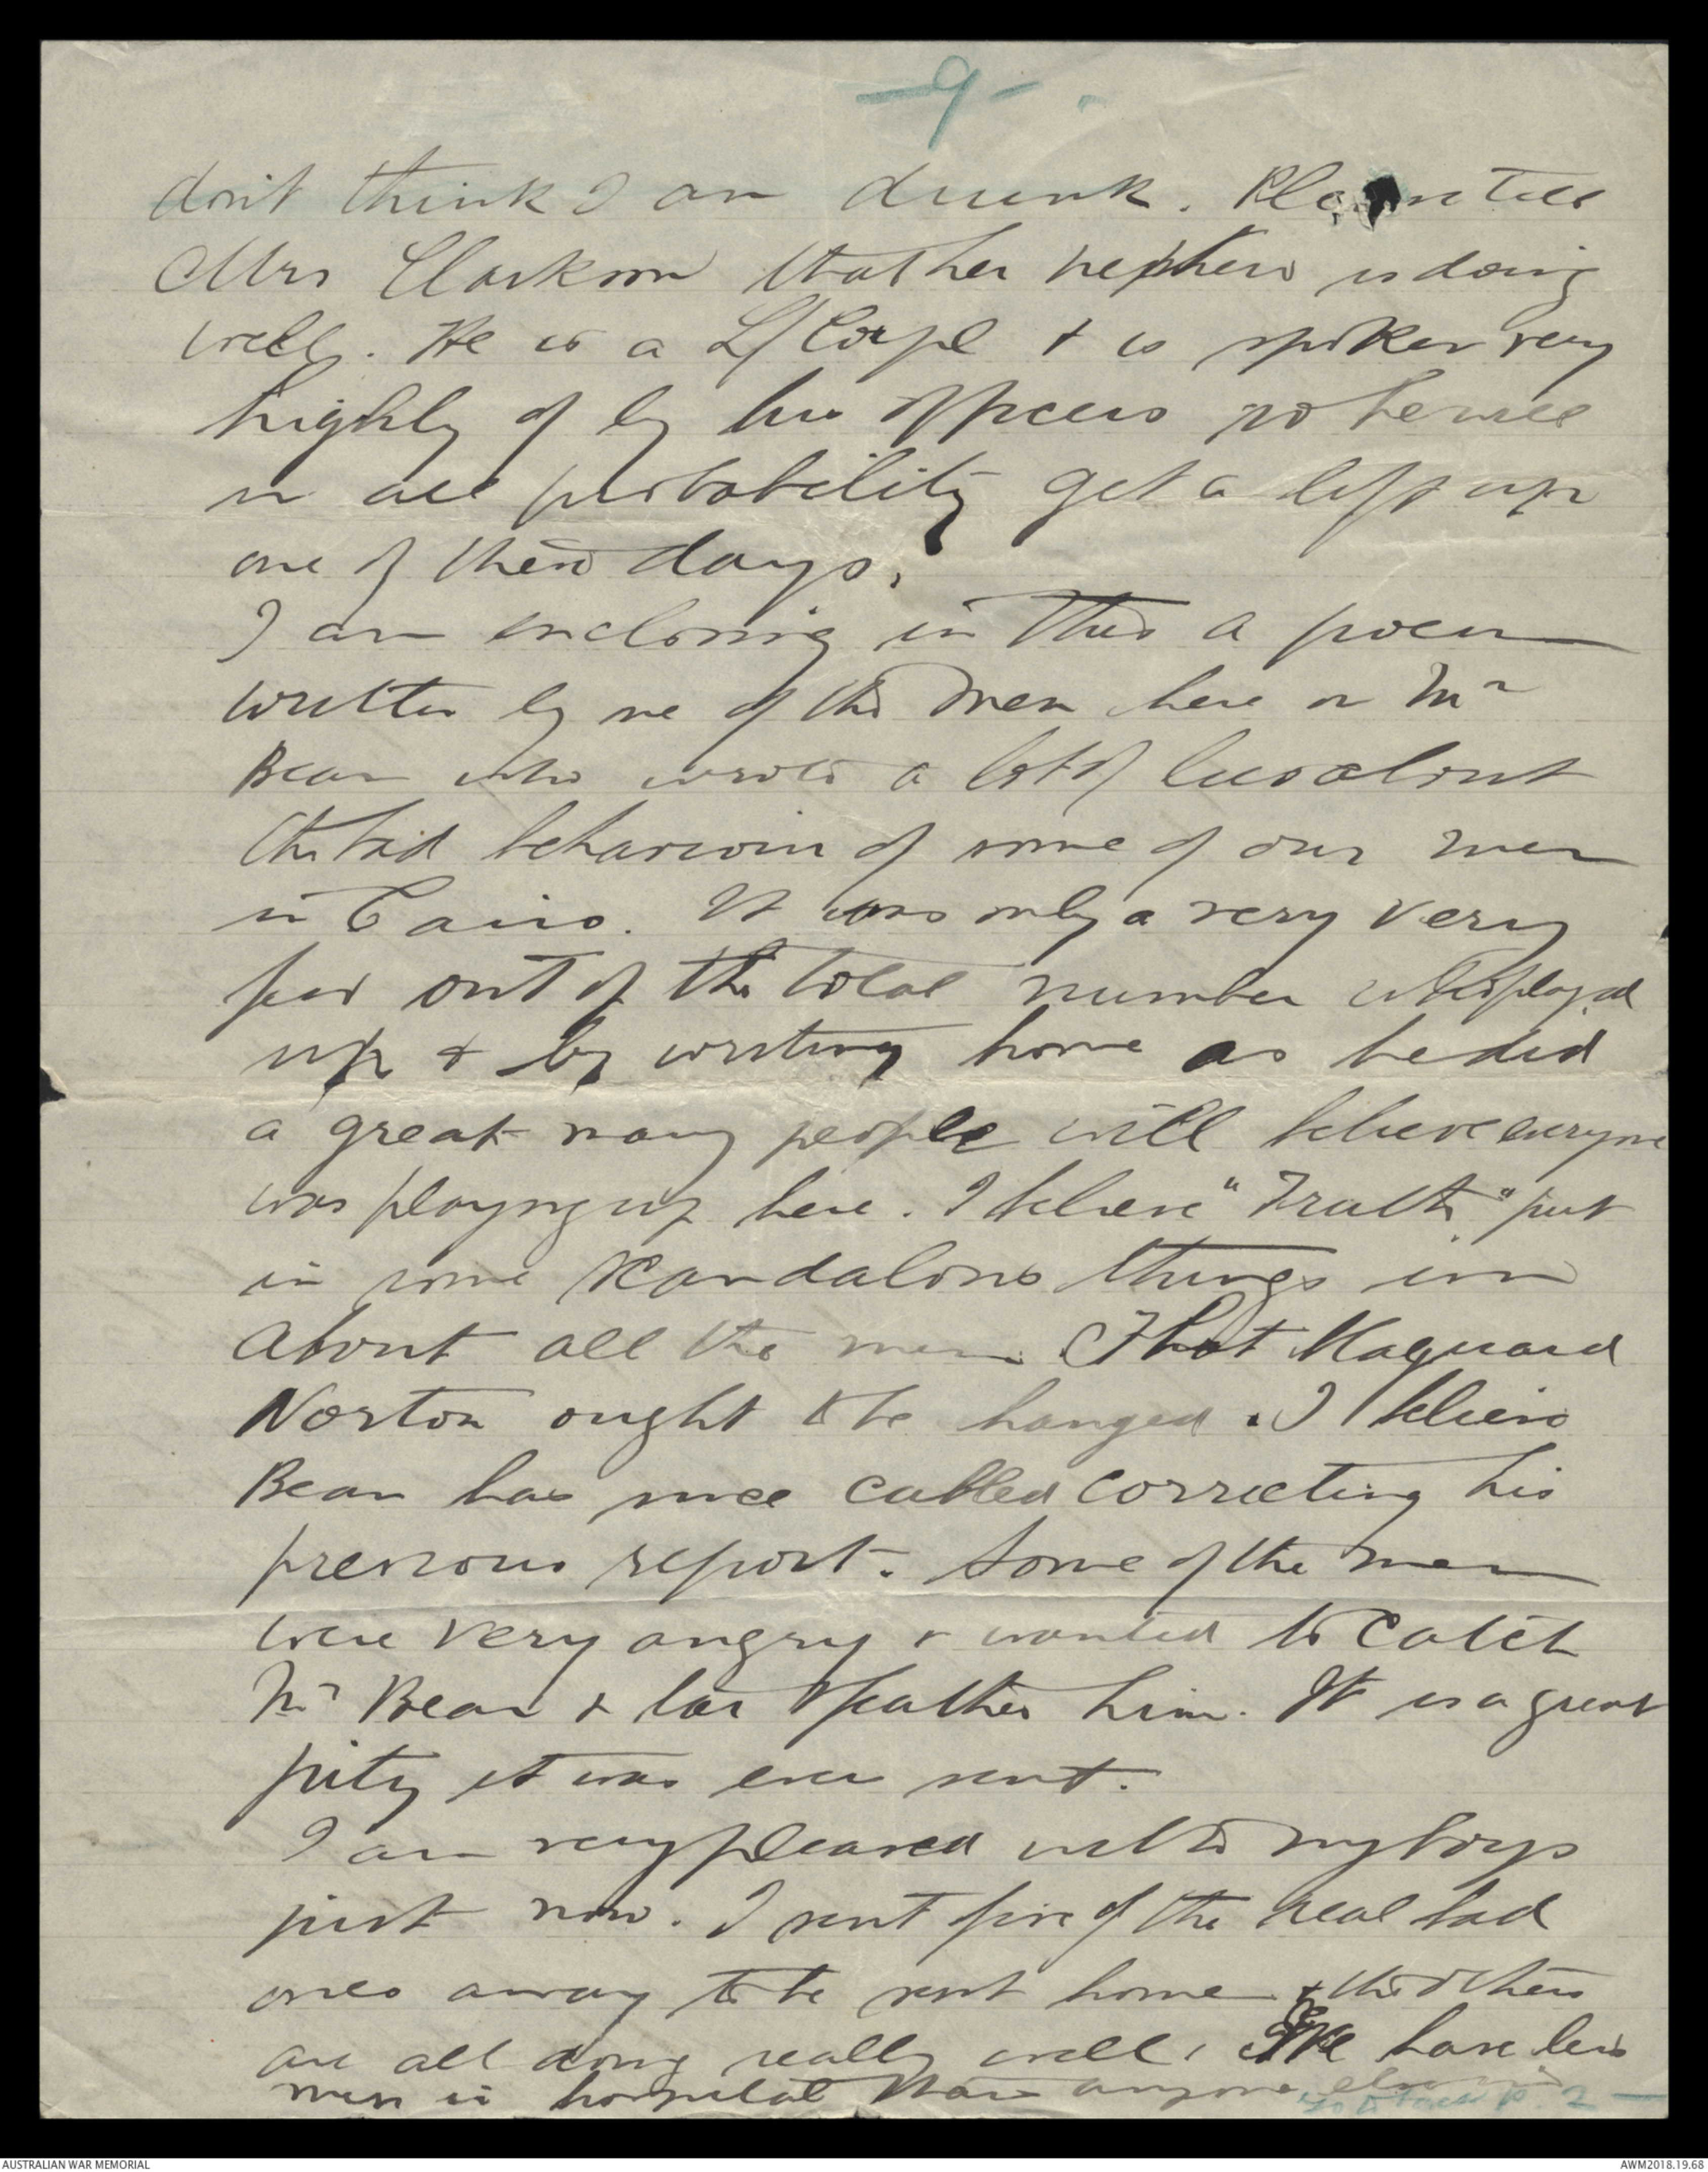 - 9 -
don't think I am drunk. Please tell
Mrs Clarkson that her nephew is doing
well. He is a L/Corpl & is spoken very
highly of by his officers so he will
in all probability get a lift up
one of these days.
I am enclosing in this a poem
written by one of the men here on Mr
Bean who wrote a lot of lies about
the bad behaviour of some of our men
in Cairo. It was only a very very
few out of the total number who played
up & by writing home as he did
a great many people will believe everyone
was playing up here. I believe "Truth" put
in some scandalous things in
about all the men. That blaguard
Norton ought to be hanged. I believe
Bean has since cabled correcting his
previous report. Some of the men
were very angry & wanted to catch
Mr Bean & tar & feather him. It is a great
pity it was ever sent.
I am very pleased with my boys
just now. I sent five of the real bad
ones away to be sent home & the others
are all doing really well. We have less
men in hospital than anyone else
p. 2 -
AUSTRALIAN WAR MEMORIAL
AWM2018.19.68